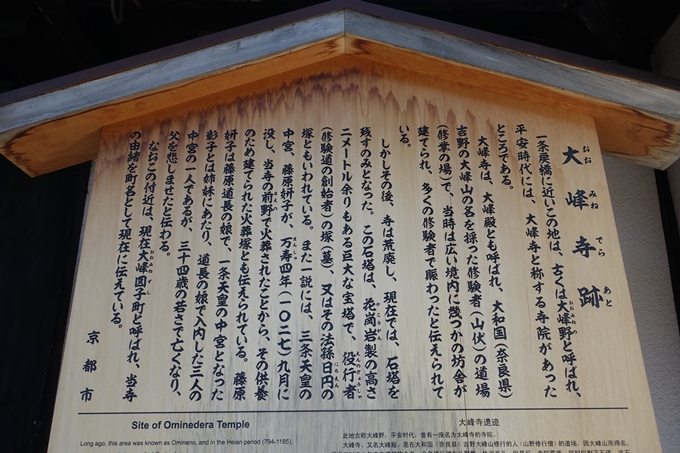 大峰寺跡
おお みね でら あと
一条戻橋に近いこの地は、古くは大峰野と呼ばれ、
おおみねの
平安時代には、大峰寺と称する寺院があった
ところである。
大峰寺は、大峰殿とも呼ばれ、大和国(奈良県)
吉野の大峰山の名を採った修験者(山伏)の道場
(修業の場)で、当時は広い境内に幾つかの坊舎が
建てられ、多くの修験者で賑わったと伝えられて
いる。
しかしその後、寺は荒廃し、現在では、石塔を
残すのみとなった。この石塔は、花崗岩製の高さ
かこうがん
二メートル余りもある巨大な宝塔で、役行者
えんのぎょうじゃ
(修験道の創始者)の塚(墓)、又はその法孫日円の
にちえん
塚ともいわれている。また一説には、三条天皇の
中宮、藤原妍子が、万寿四年(一〇二七)九月に
没し、当寺の前野で火葬されたことから、その供養
のため建てられた火葬塚とも伝えられている。藤原
妍子は藤原道長の娘で、一条天皇の中宮となった
彰子とは姉妹にあたり、道長の娘で入内した三人の
中宮の一人であるが、三十四歳の若さで亡くなり、
父を悲しませたと伝わる。
なおこの付近は、現在大峰図子町と呼ばれ、当寺
の由緒を町名として現在に伝えている。
京都市
Site of Ominedera Temple
Long ago, this area was known as Omineno, and in the Heian period (794-1185),
大峰寺遗迹
此地古称大峰野，平安时代，曾有一座名为大峰寺的寺院。
大峰寺，又名大峰殿，是在大和国（奈良县）吉野大峰山修行的人（山野修行僧）的道场，因大峰山而得名。